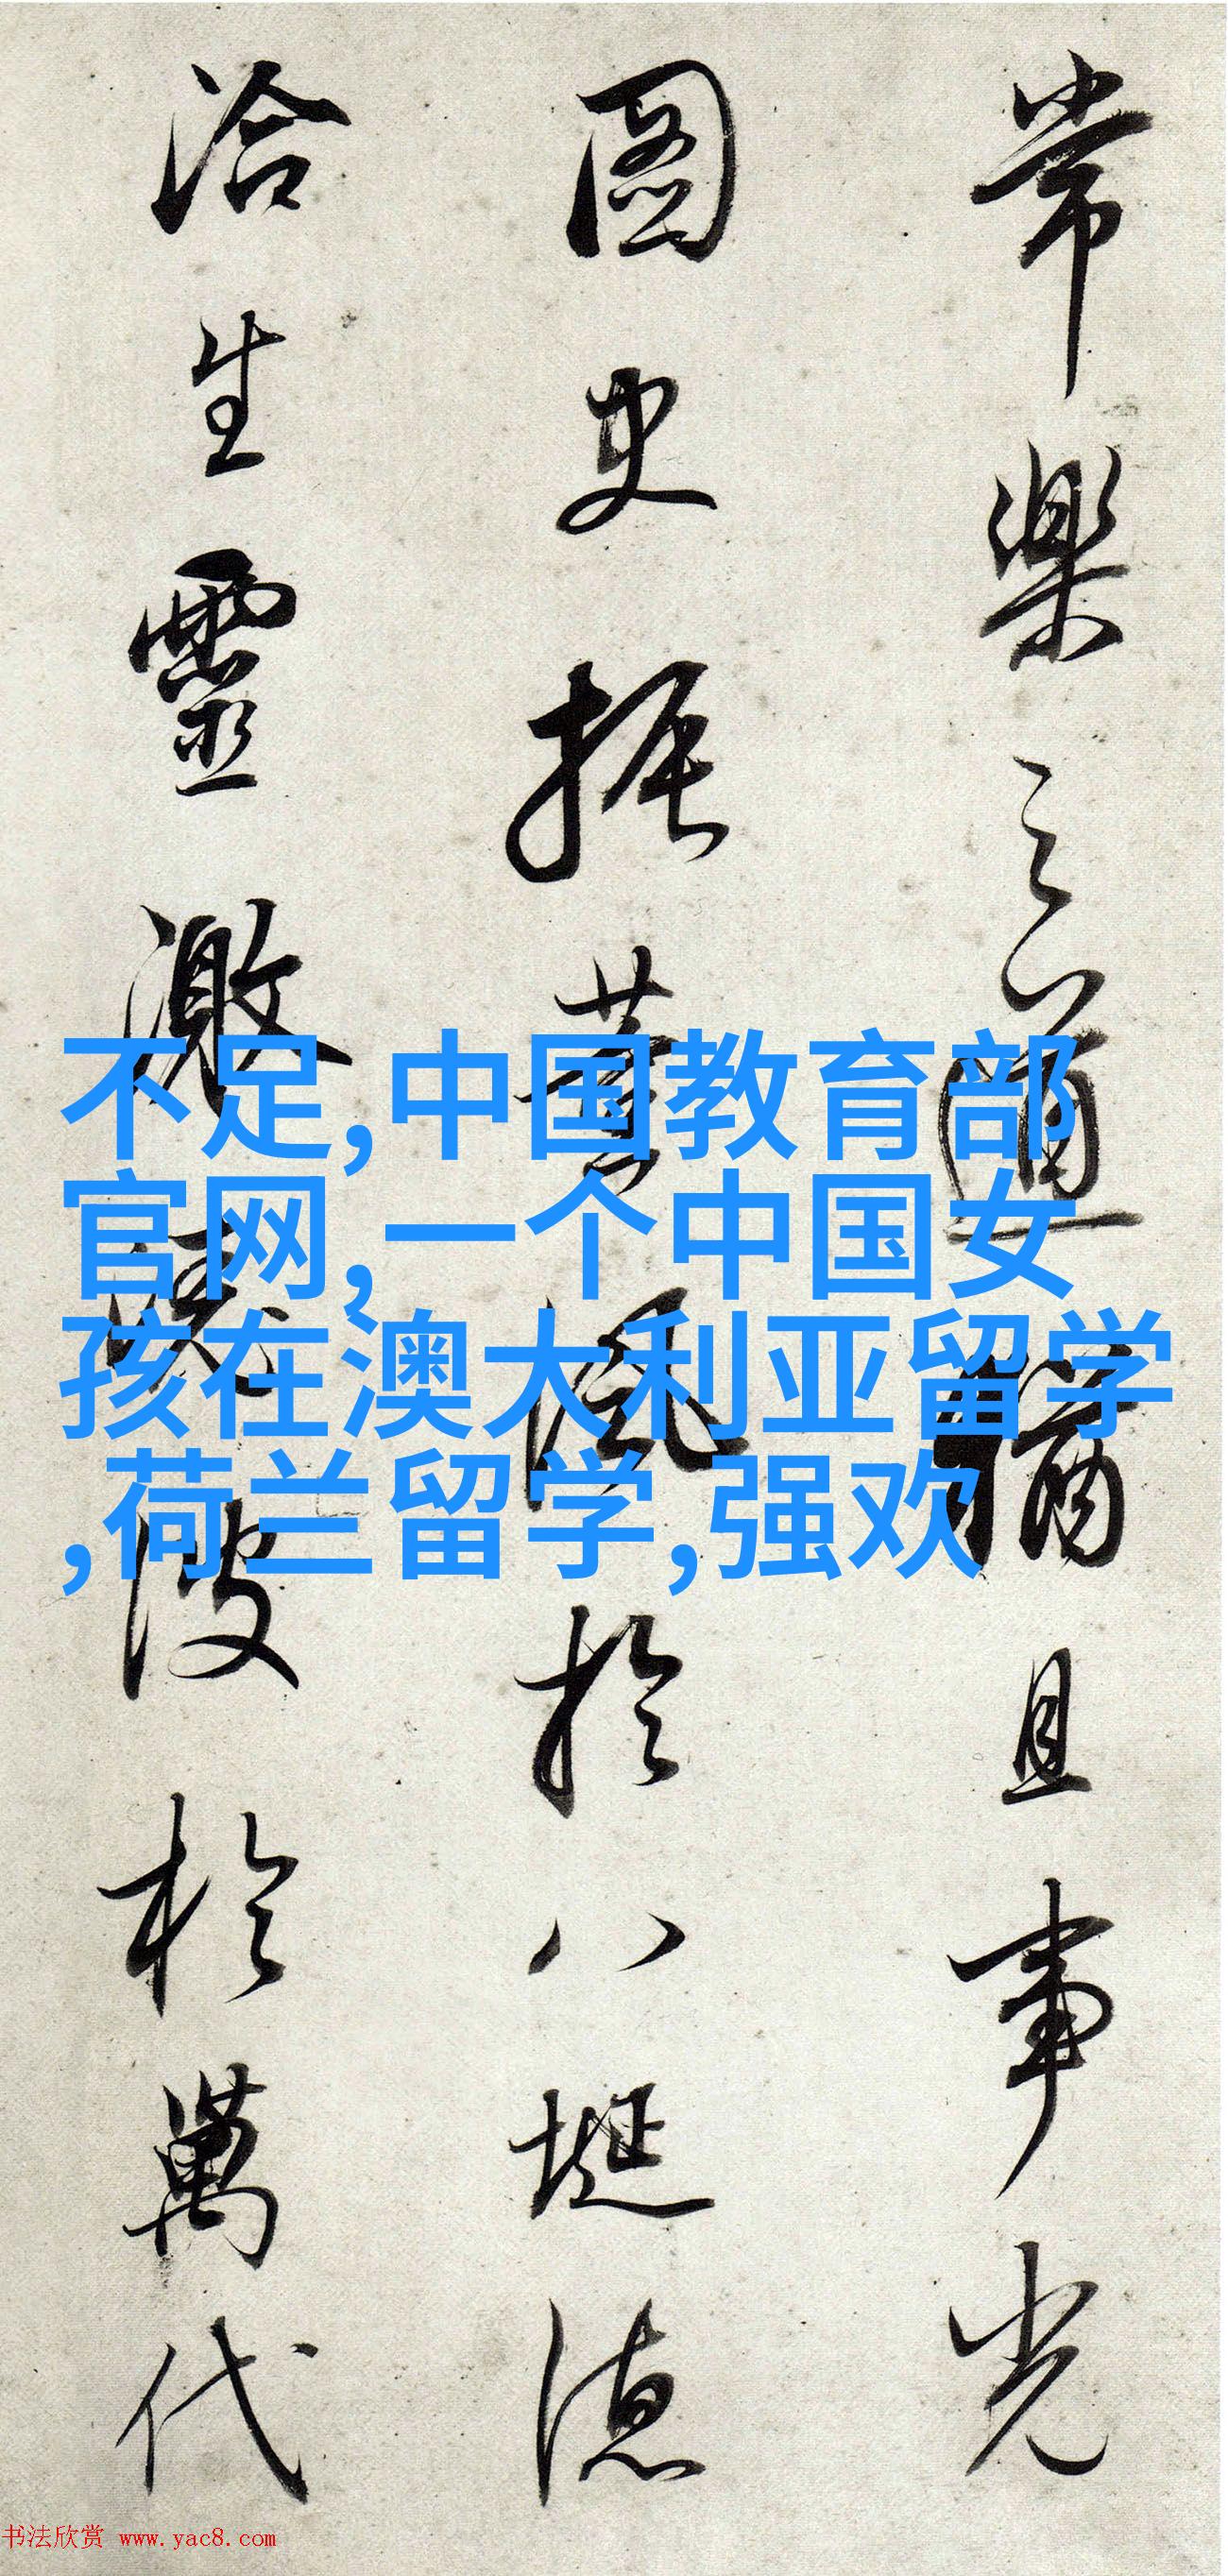 常樂之道猶且事光
圖史振英風於八埏德
洽生靈激
波於萬代
不足,中国教育部
官网,一个中国女
孩在澳大利亚留学
,荷兰留学,强欢
书法欣赏 www.yac8.com